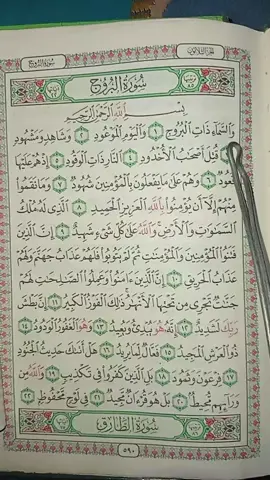 سُورَةُ البُرُوجِ الجزء الثلاثون
سُورَةُ البُرُوجِ
بِسْمِ اللَّهِ الرَّحْمَٰنِ الرَّحِيمِ
وَالسَّمَاءِ ذَاتِ الْبُرُوجِ ١ وَالْيَوْمِ الْمَوْعُودِ ٢ وَشَاهِدٍ وَمَشْهُودٍ
٣ قُتِلَ أَصْحَابُ الْأُخْدُودِ ٤ النَّارِ ذَاتِ الْوَقُودِ ٥ إِذْ هُمْ عَلَيْهَا
قُعُودٌ ٦ وَهُمْ عَلَىٰ مَا يَفْعَلُونَ بِالْمُؤْمِنِينَ شُهُودٌ ٧ وَمَا نَقَمُوا
مِنْهُمْ إِلَّا أَن يُؤْمِنُوا بِاللَّهِ الْعَزِيزِ الْحَمِيدِ ٨ الَّذِي لَهُ مُلْكُ
السَّمَاوَاتِ وَالْأَرْضِ وَاللَّهُ عَلَىٰ كُلِّ شَيْءٍ شَهِيدٌ ٩ إِنَّ الَّذِينَ
فَتَنُوا الْمُؤْمِنِينَ وَالْمُؤْمِنَاتِ ثُمَّ لَمْ يَتُوبُوا فَلَهُمْ عَذَابُ جَهَنَّمَ وَلَهُمْ
عَذَابُ الْحَرِيقِ ١٠ إِنَّ الَّذِينَ آمَنُوا وَعَمِلُوا الصَّالِحَاتِ لَهُمْ
جَنَّاتٌ تَجْرِي مِن تَحْتِهَا الْأَنْهَارُ ذَٰلِكَ الْفَوْزُ الْكَبِيرُ ١١ إِنَّ بَطْشَ
رَبِّكَ لَشَدِيدٌ ١٢ إِنَّهُ هُوَ يُبْدِئُ وَيُعِيدُ ١٣ وَهُوَ الْغَفُورُ الْوَدُودُ ١٤
ذُو الْعَرْشِ الْمَجِيدُ ١٥ فَعَّالٌ لِّمَا يُرِيدُ ١٦ هَلْ أَتَاكَ حَدِيثُ الْجُنُودِ
١٧ فِرْعَوْنَ وَثَمُودَ ١٨ بَلِ الَّذِينَ كَفَرُوا فِي تَكْذِيبٍ ١٩ وَاللَّهُ مِن
وَرَائِهِم مُّحِيطٌ ٢٠ بَلْ هُوَ قُرْآنٌ مَّجِيدٌ ٢١ فِي لَوْحٍ مَّحْفُوظٍ ٢٢
سُورَةُ الطَّارِقِ
٥٩٠